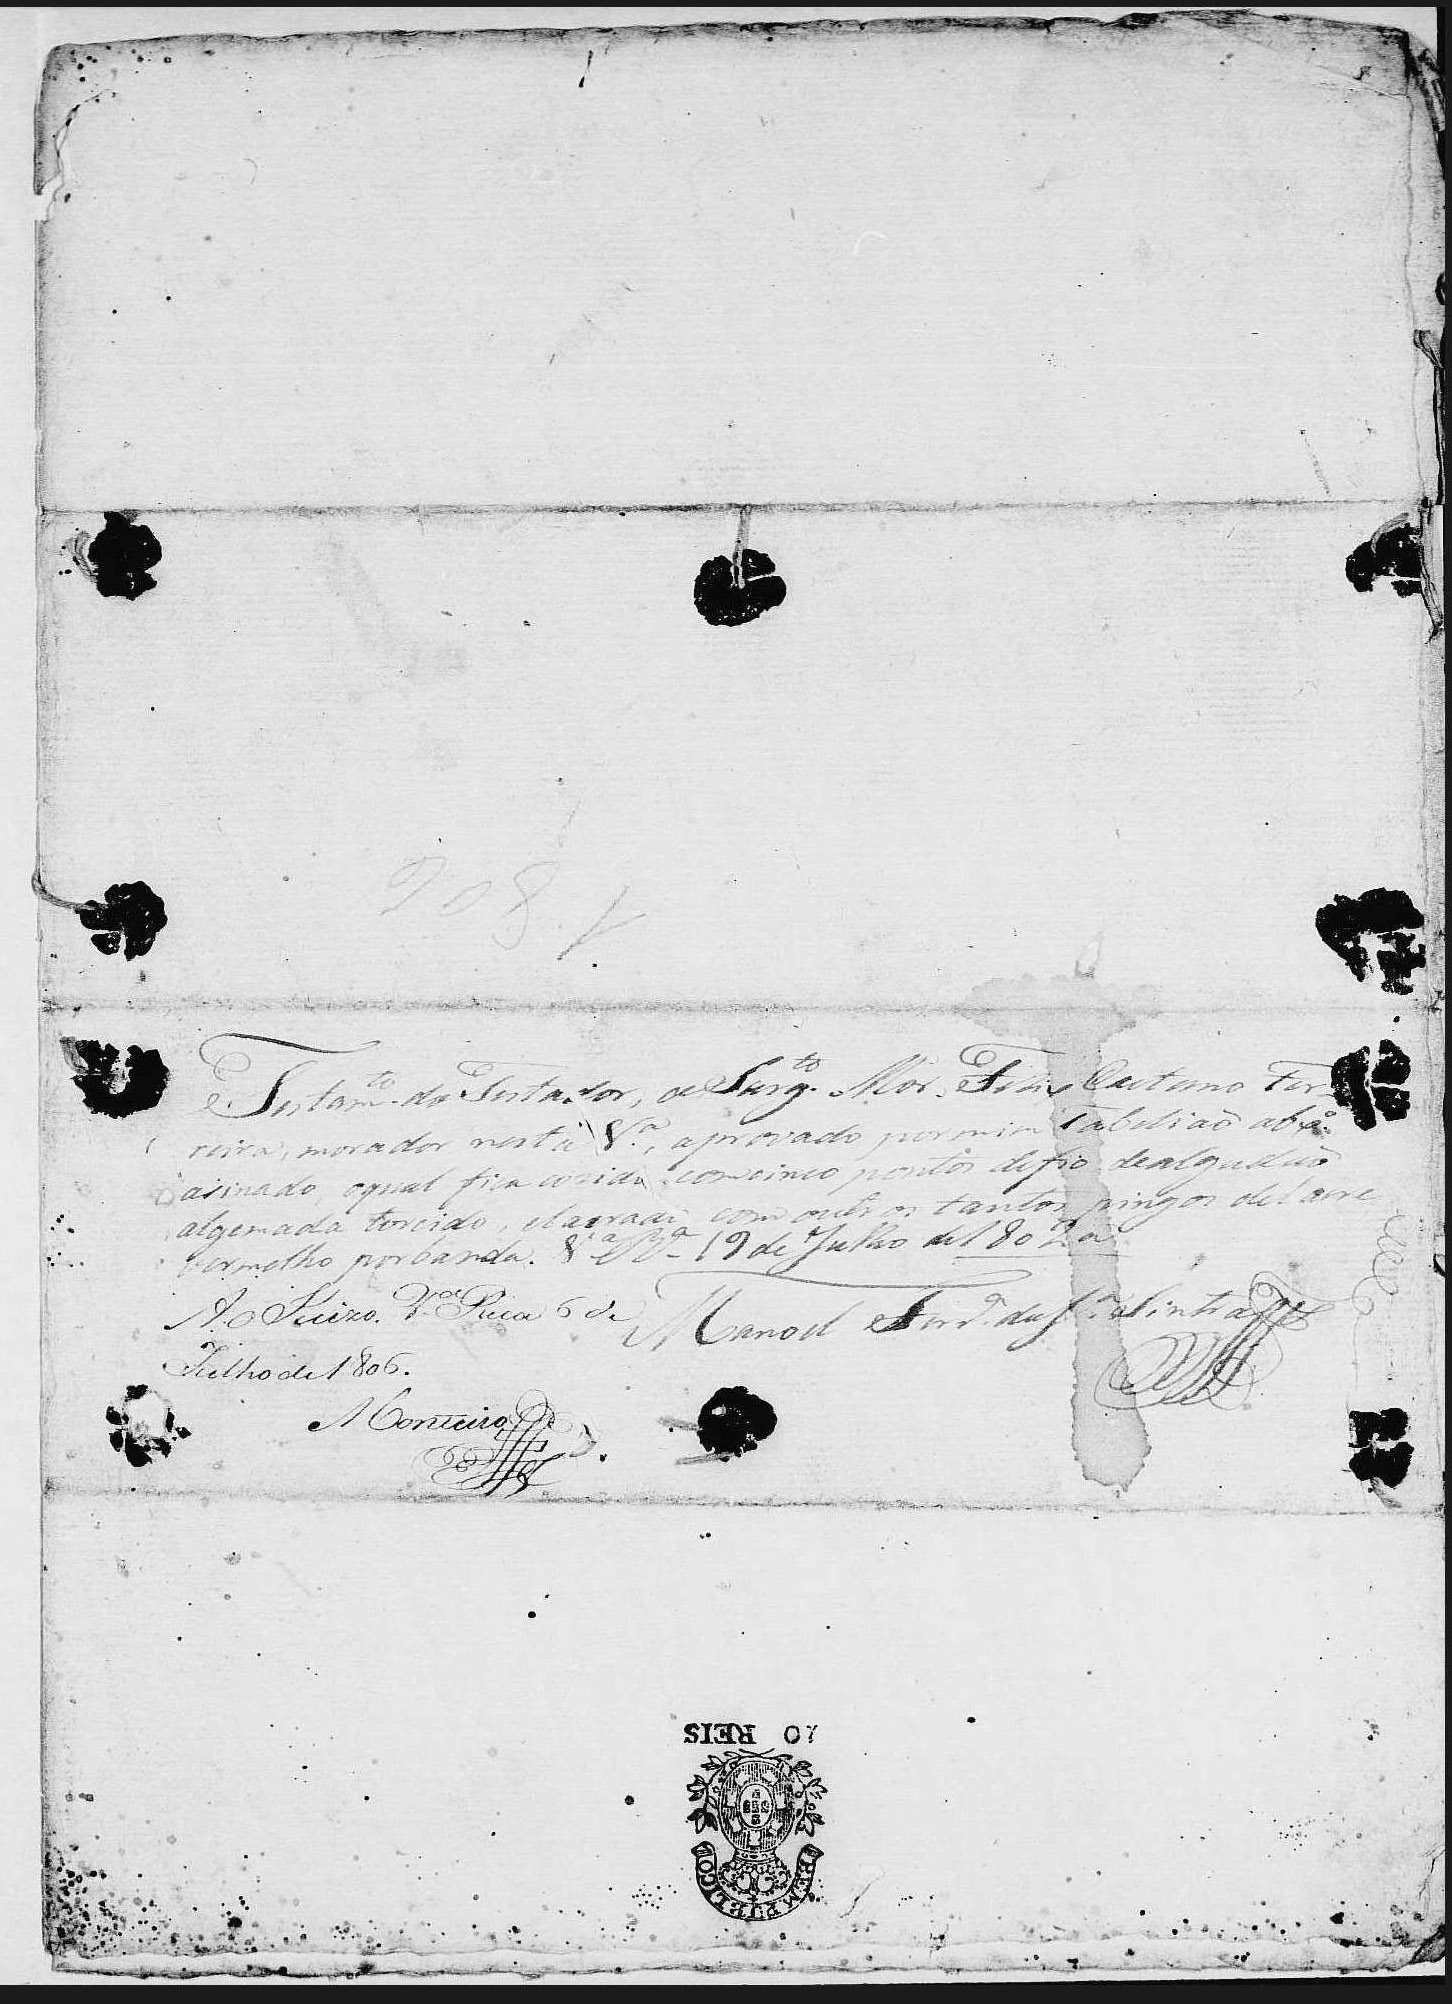 208
Testam.to do Testador, o Sarg.to Mor. Felis Caetano Fer
reira, morador nesta V.a, aprovado por mim Tabeliaõ abx.o
asinado, o qual fica cozido com cinco pontos de fio de algudaõ
algemada torcido, e lacrado com outros tantos pingos de lacre
vermelho por banda. V.a R.a 19 de Julho de 1802 a
Manoel Ferr.a da S.a Sintra
A o Juizo. V.a Rica 6 de
Julho de 1806.
Monteiro
10 REIS